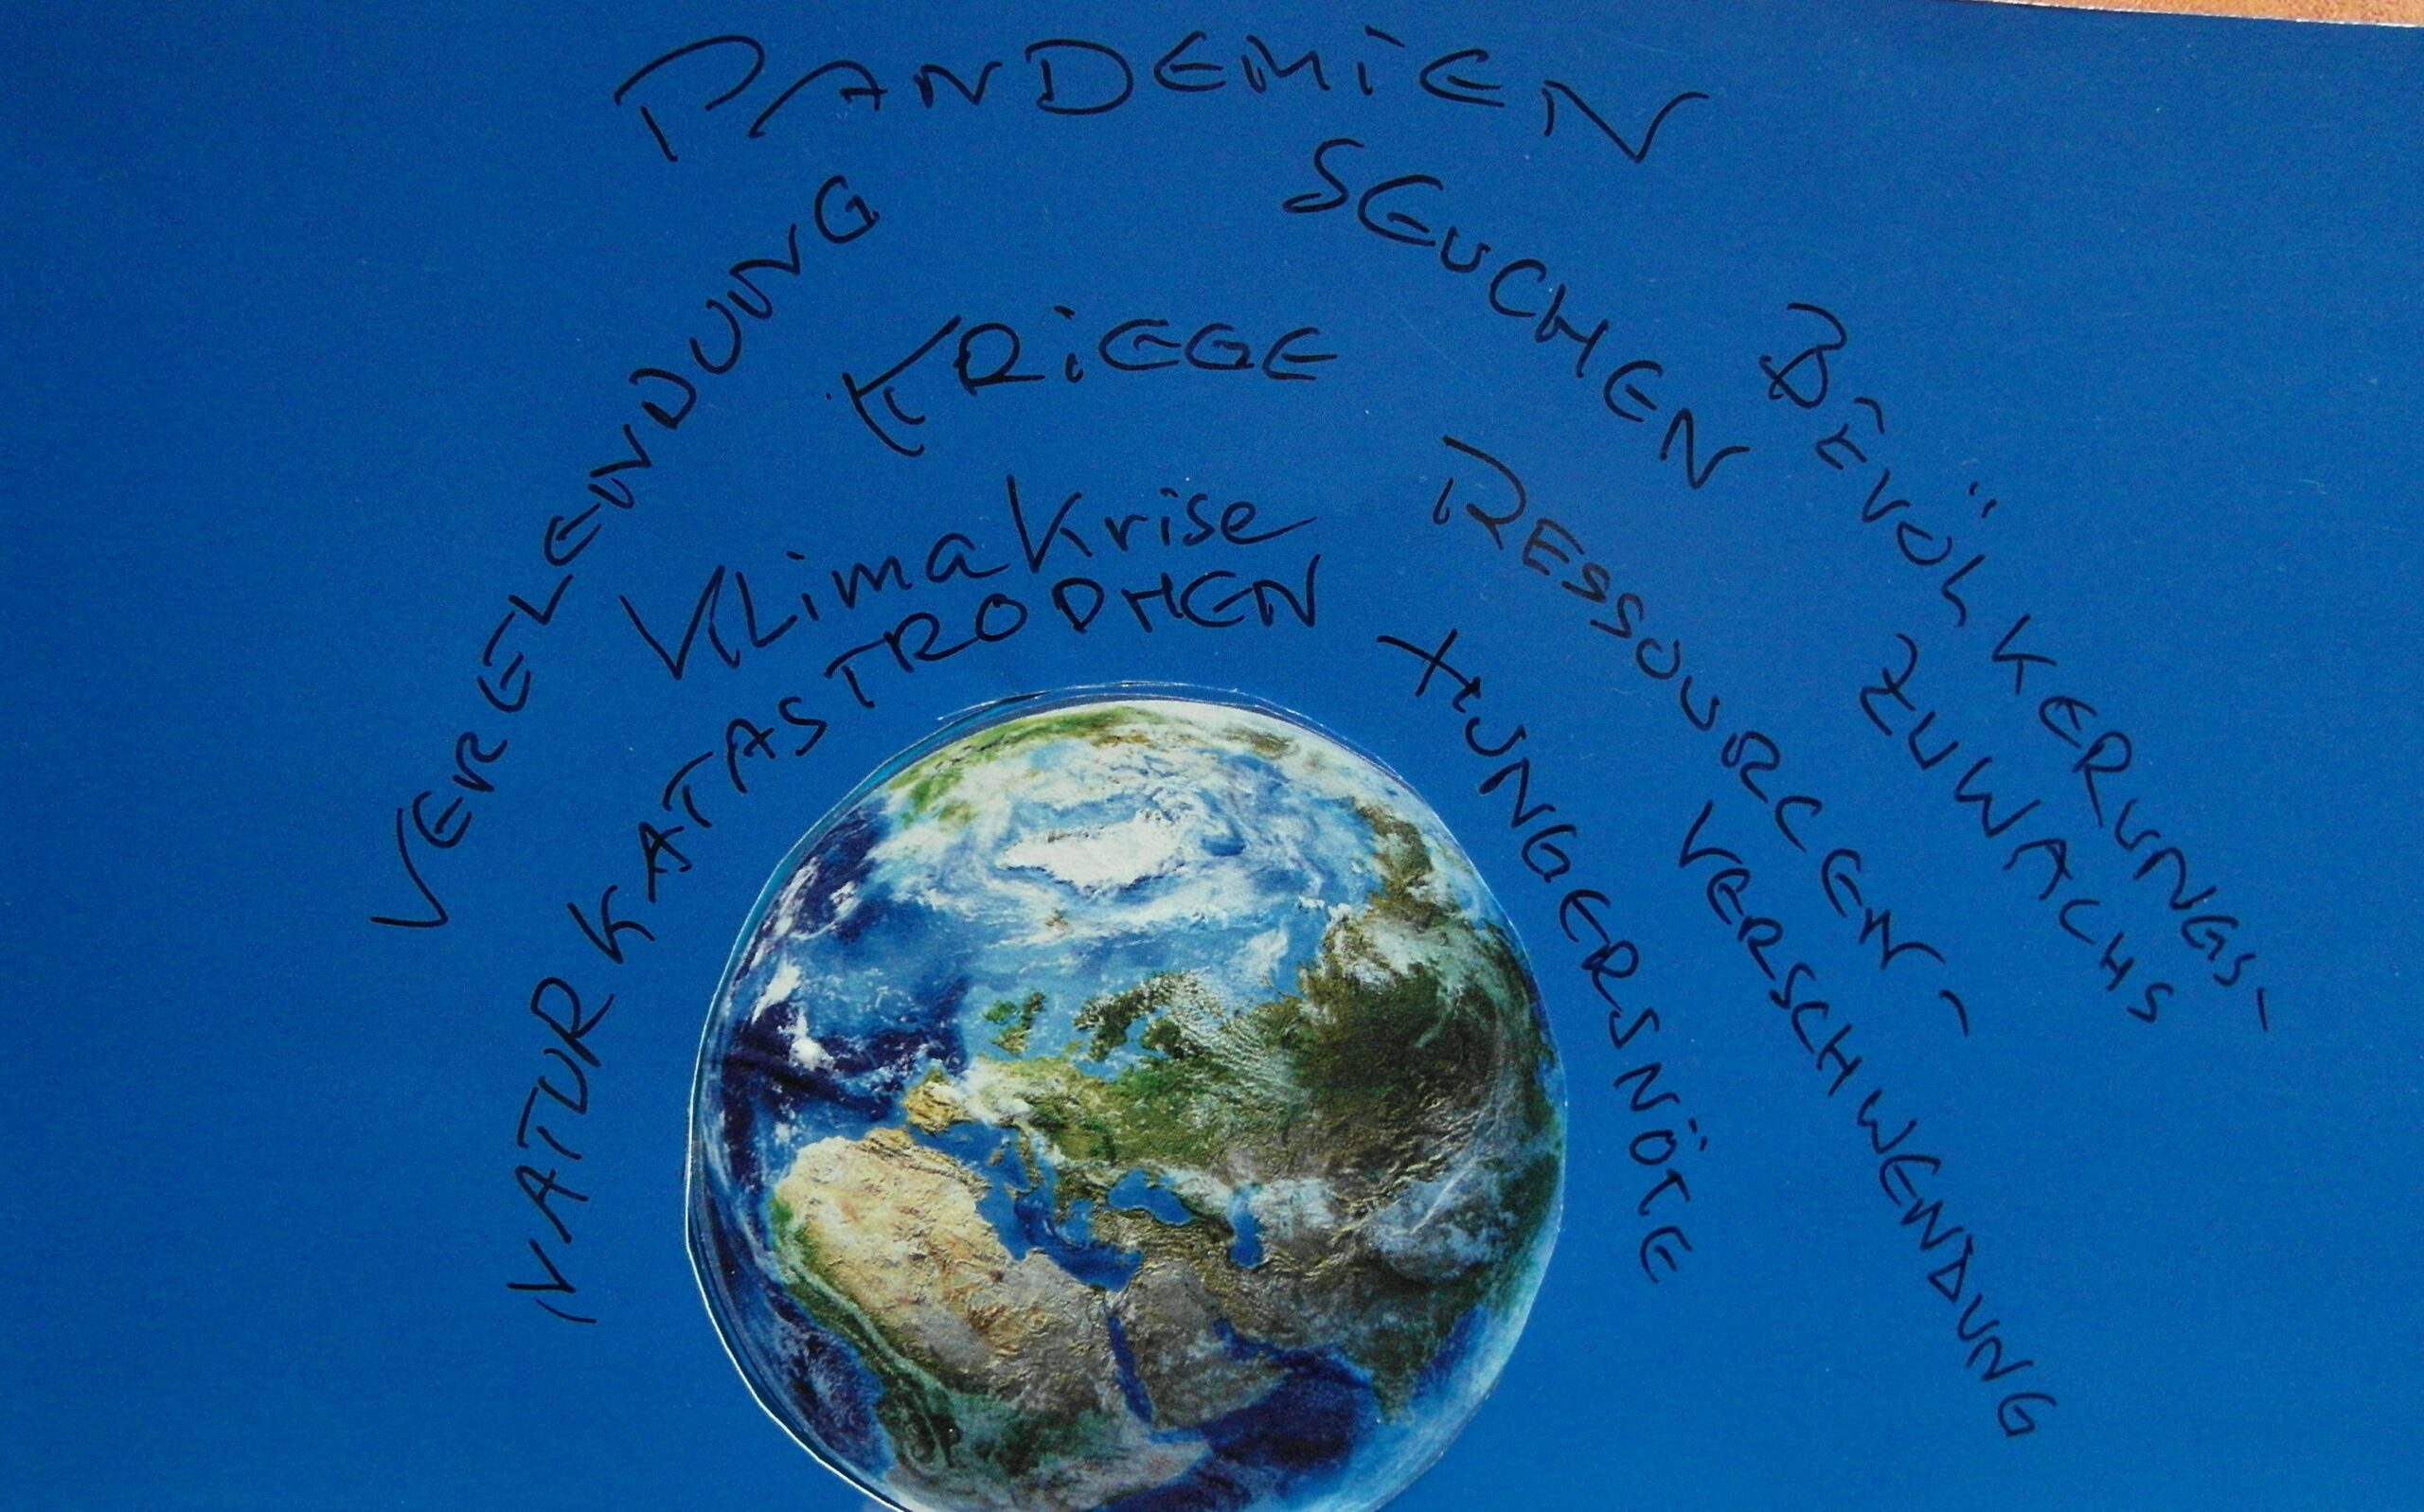 PANDEMIEN
VERELENDUNG
SEUCHEN
KRiEGE
BEVÖLKERUNGS-
ZUWACHS
KLimaKrise
RESSOURCEN-
VERSCHWENDUNG
NATURKATASTROPHEN
HUNGERSNÖTE